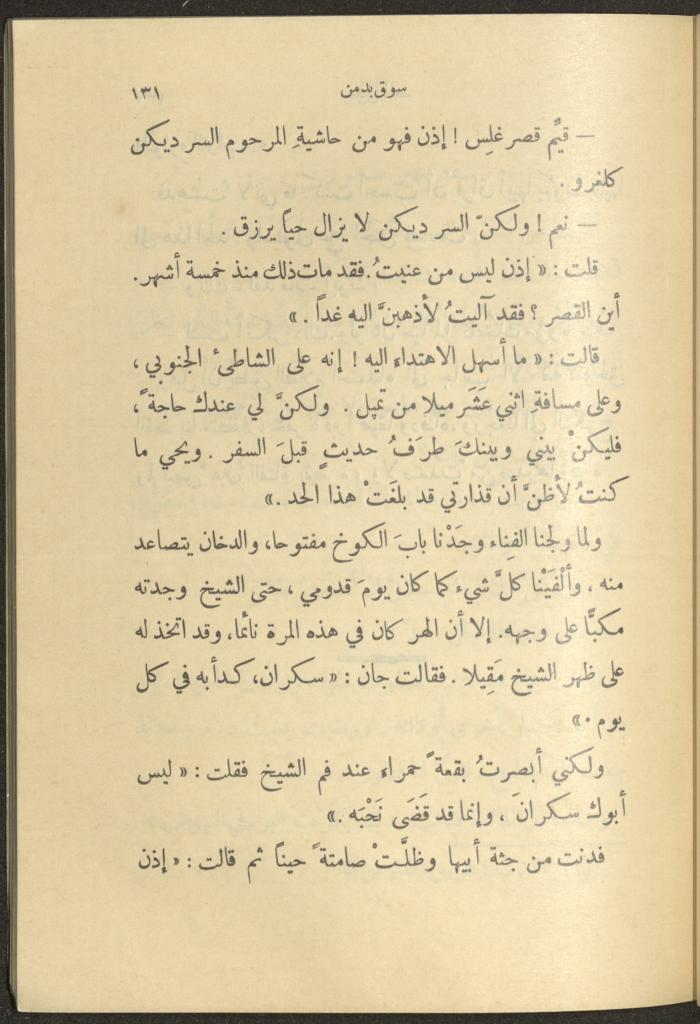 سوق بدمن ١٣١
— قيِّم قصر غلِس ! إذن فهو من حاشيةِ المرحوم السر ديكن
كلغرو .
— نعم ! ولكنّ السر ديكن لا يزال حياً يرزق .
قلت : « إذن ليس من عنيتُ. فقد مات ذلك منذ خمسة أشهر.
أين القصر ؟ فقد آليتُ لأذهبنَّ اليه غداً . »
قالت : « ما أسهل الاهتداء اليه ! إنه على الشاطئ الجنوبي ،
وعلى مسافةِ اثني عَشَر ميلا من تمپل . ولكنَّ لي عندك حاجةً ،
فليكنْ بيني وبينكَ طرَفُ حديثٍ قبلَ السفر . ويحي ما
كنتُ لأظنَّ أن قذارتي قد بلغَتْ هذا الحد . »
ولما ولجنا الفِناء وجَدْنا بابَ الكوخ مفتوحا، والدخان يتصاعد
منه ، وألْفَيْنا كلَّ شيء كما كان يومَ قدومي ، حتى الشيخ وجدته
مكبًّا على وجهه. إلا أن الهر كان في هذه المرة نائما، وقد اتخذ له
على ظهر الشيخ مَقِيلا . فقالت جان : « سكران، كدأبه في كل
يوم . »
ولكني أبصرتُ بقعةً حمراء عند فم الشيخ فقلت : « ليس
أبوك سكرانَ ، وإنما قد قَضَى نَحْبَه . »
فدنت من جثة أبيها وظلَّتْ صامتةً حيناً ثم قالت : « إذن